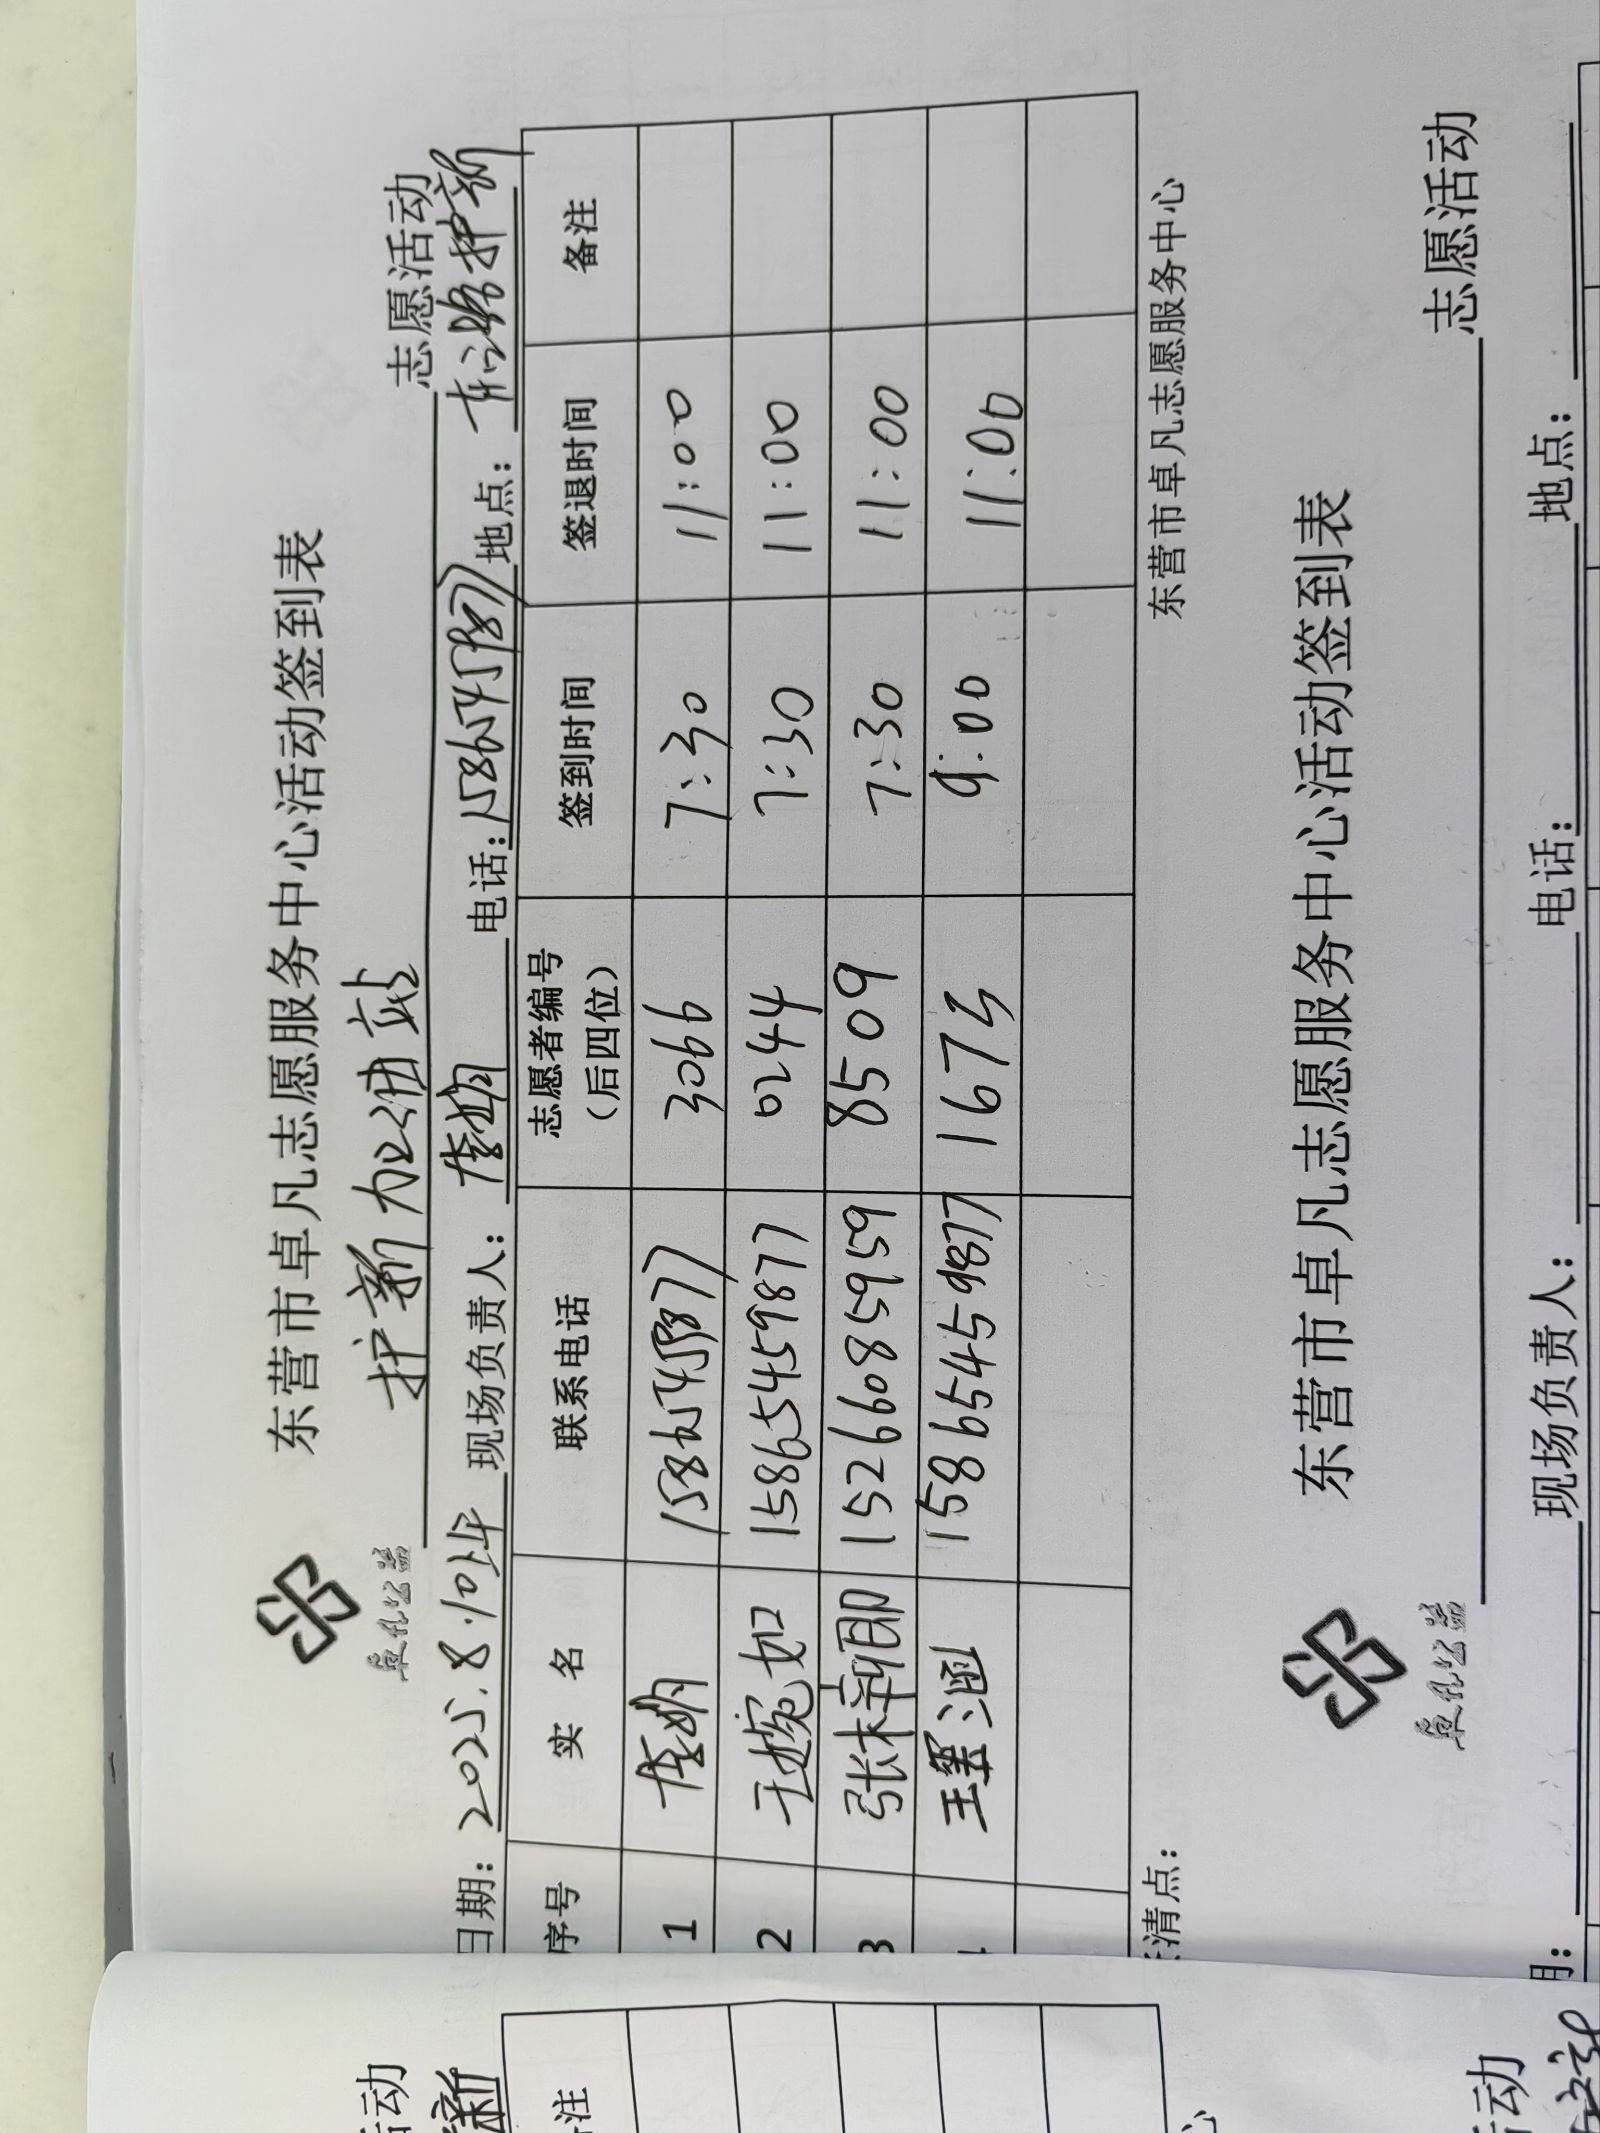 东营市卓凡志愿服务中心活动签到表
卓凡公益 护新加油站 志愿活动
日期：2025.8.10上午 现场负责人： 电话：15865459877 地点：东凌护新
序号 实 名 联系电话 志愿者编号（后四位） 签到时间 签退时间 备注
1 15865459877 3066 7:30 11:00
2 王婉如 15865459877 0244 7:30 11:00
3 张楠 15266085959 8509 7:30 11:00
王 涵 15865459877 1675 9:00 11:00
清点： 东营市卓凡志愿服务中心
东营市卓凡志愿服务中心活动签到表
卓凡公益 志愿活动
期： 现场负责人： 电话： 地点：
活动
新
注
心
活动